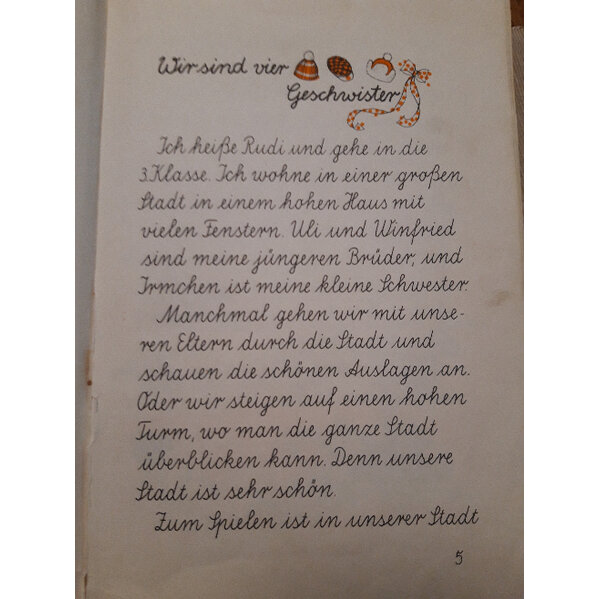 Wir sind vier
Geschwister
Ich heiße Rudi und gehe in die
3. Klasse. Ich wohne in einer großen
Stadt in einem hohen Haus mit
vielen Fenstern. Uli und Winfried
sind meine jüngeren Brüder, und
Irmchen ist meine kleine Schwester.
Manchmal gehen wir mit unse-
ren Eltern durch die Stadt und
schauen die schönen Auslagen an.
Oder wir steigen auf einen hohen
Turm, wo man die ganze Stadt
überblicken kann. Denn unsere
Stadt ist sehr schön.
Zum Spielen ist in unserer Stadt
5